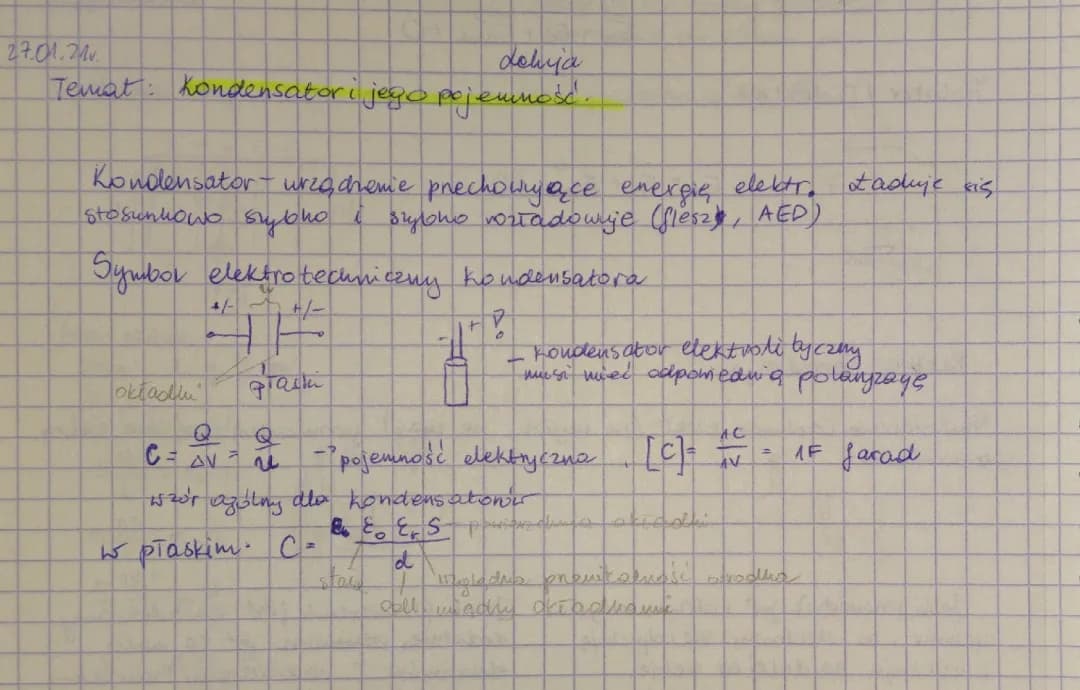 27.01.21r.
Temat: Kondensator i jego pojemność.
Kondensator - urządzenie przechowujące energię elektr. Ładuje się
stosunkowo szybko i szybko rozładowuje (flesz, AED)
Symbol elektrotechniczny kondensatora
+/- +/-
- + ?
- kondensator elektrolityczny
musi mieć odpowiednią polaryzację
okładki płaski
C = Q/ΔV = Q/U → pojemność elektryczna, [C] = 1C/1V = 1F farad
wzór ogólny dla kondensatorów
w płaskim. C = ε₀ εᵣ S / d powierzchnia okładki
stała względna przenikalność ośrodka
odl. między okładkami